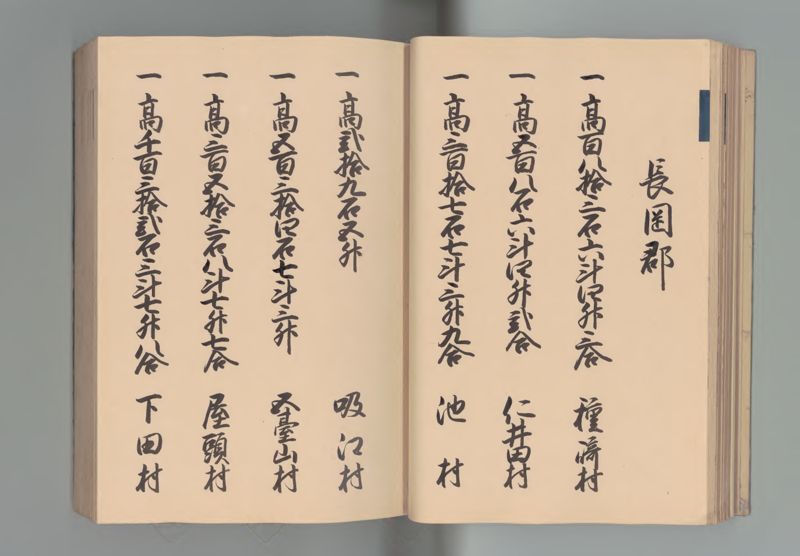 長岡郡
一高百八拾三石六斗四升三合 種﨑村
一高五百八石六斗四升貳合 仁井田村
一高三百拾七石七斗三升九合 池村
一高貳拾九石五升 吸江村
一高五百三拾四石七斗三升 五臺山村
一高三百五拾三石八斗七升七合 屋頭村
一高千百三拾貳石三斗七升八合 下田村